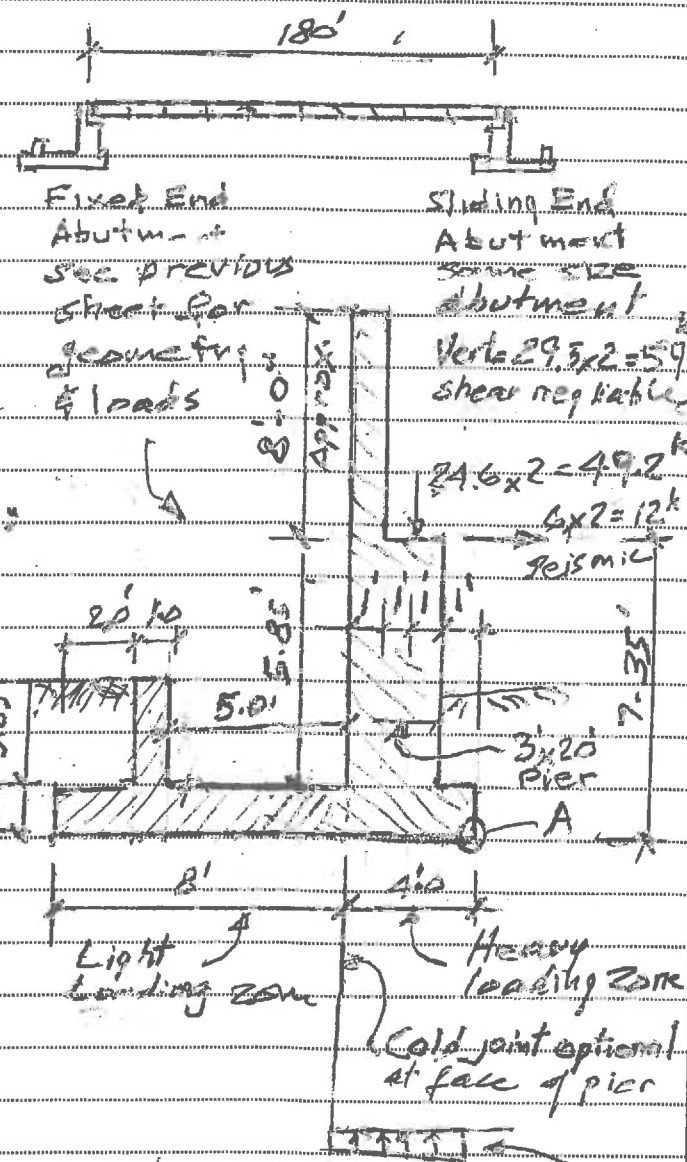 180'
Fixed End
Abutm-t
see previous
sheet for
geometry
& loads
Sliding End
Abutment
same size
abutment
Vert= 29.5x2=59
shear negliable
8'-0
Approx.
24.6x2=49.2k
6x2=12k
seismic
2.0' 1.0
5.85'
1' 1' 1' 1'
7.35'
5.0'
3'x20'
Pier
A
8'
4'.0
Light
Loading zone
Heavy
loading zone
Cold joint optional
at face of pier